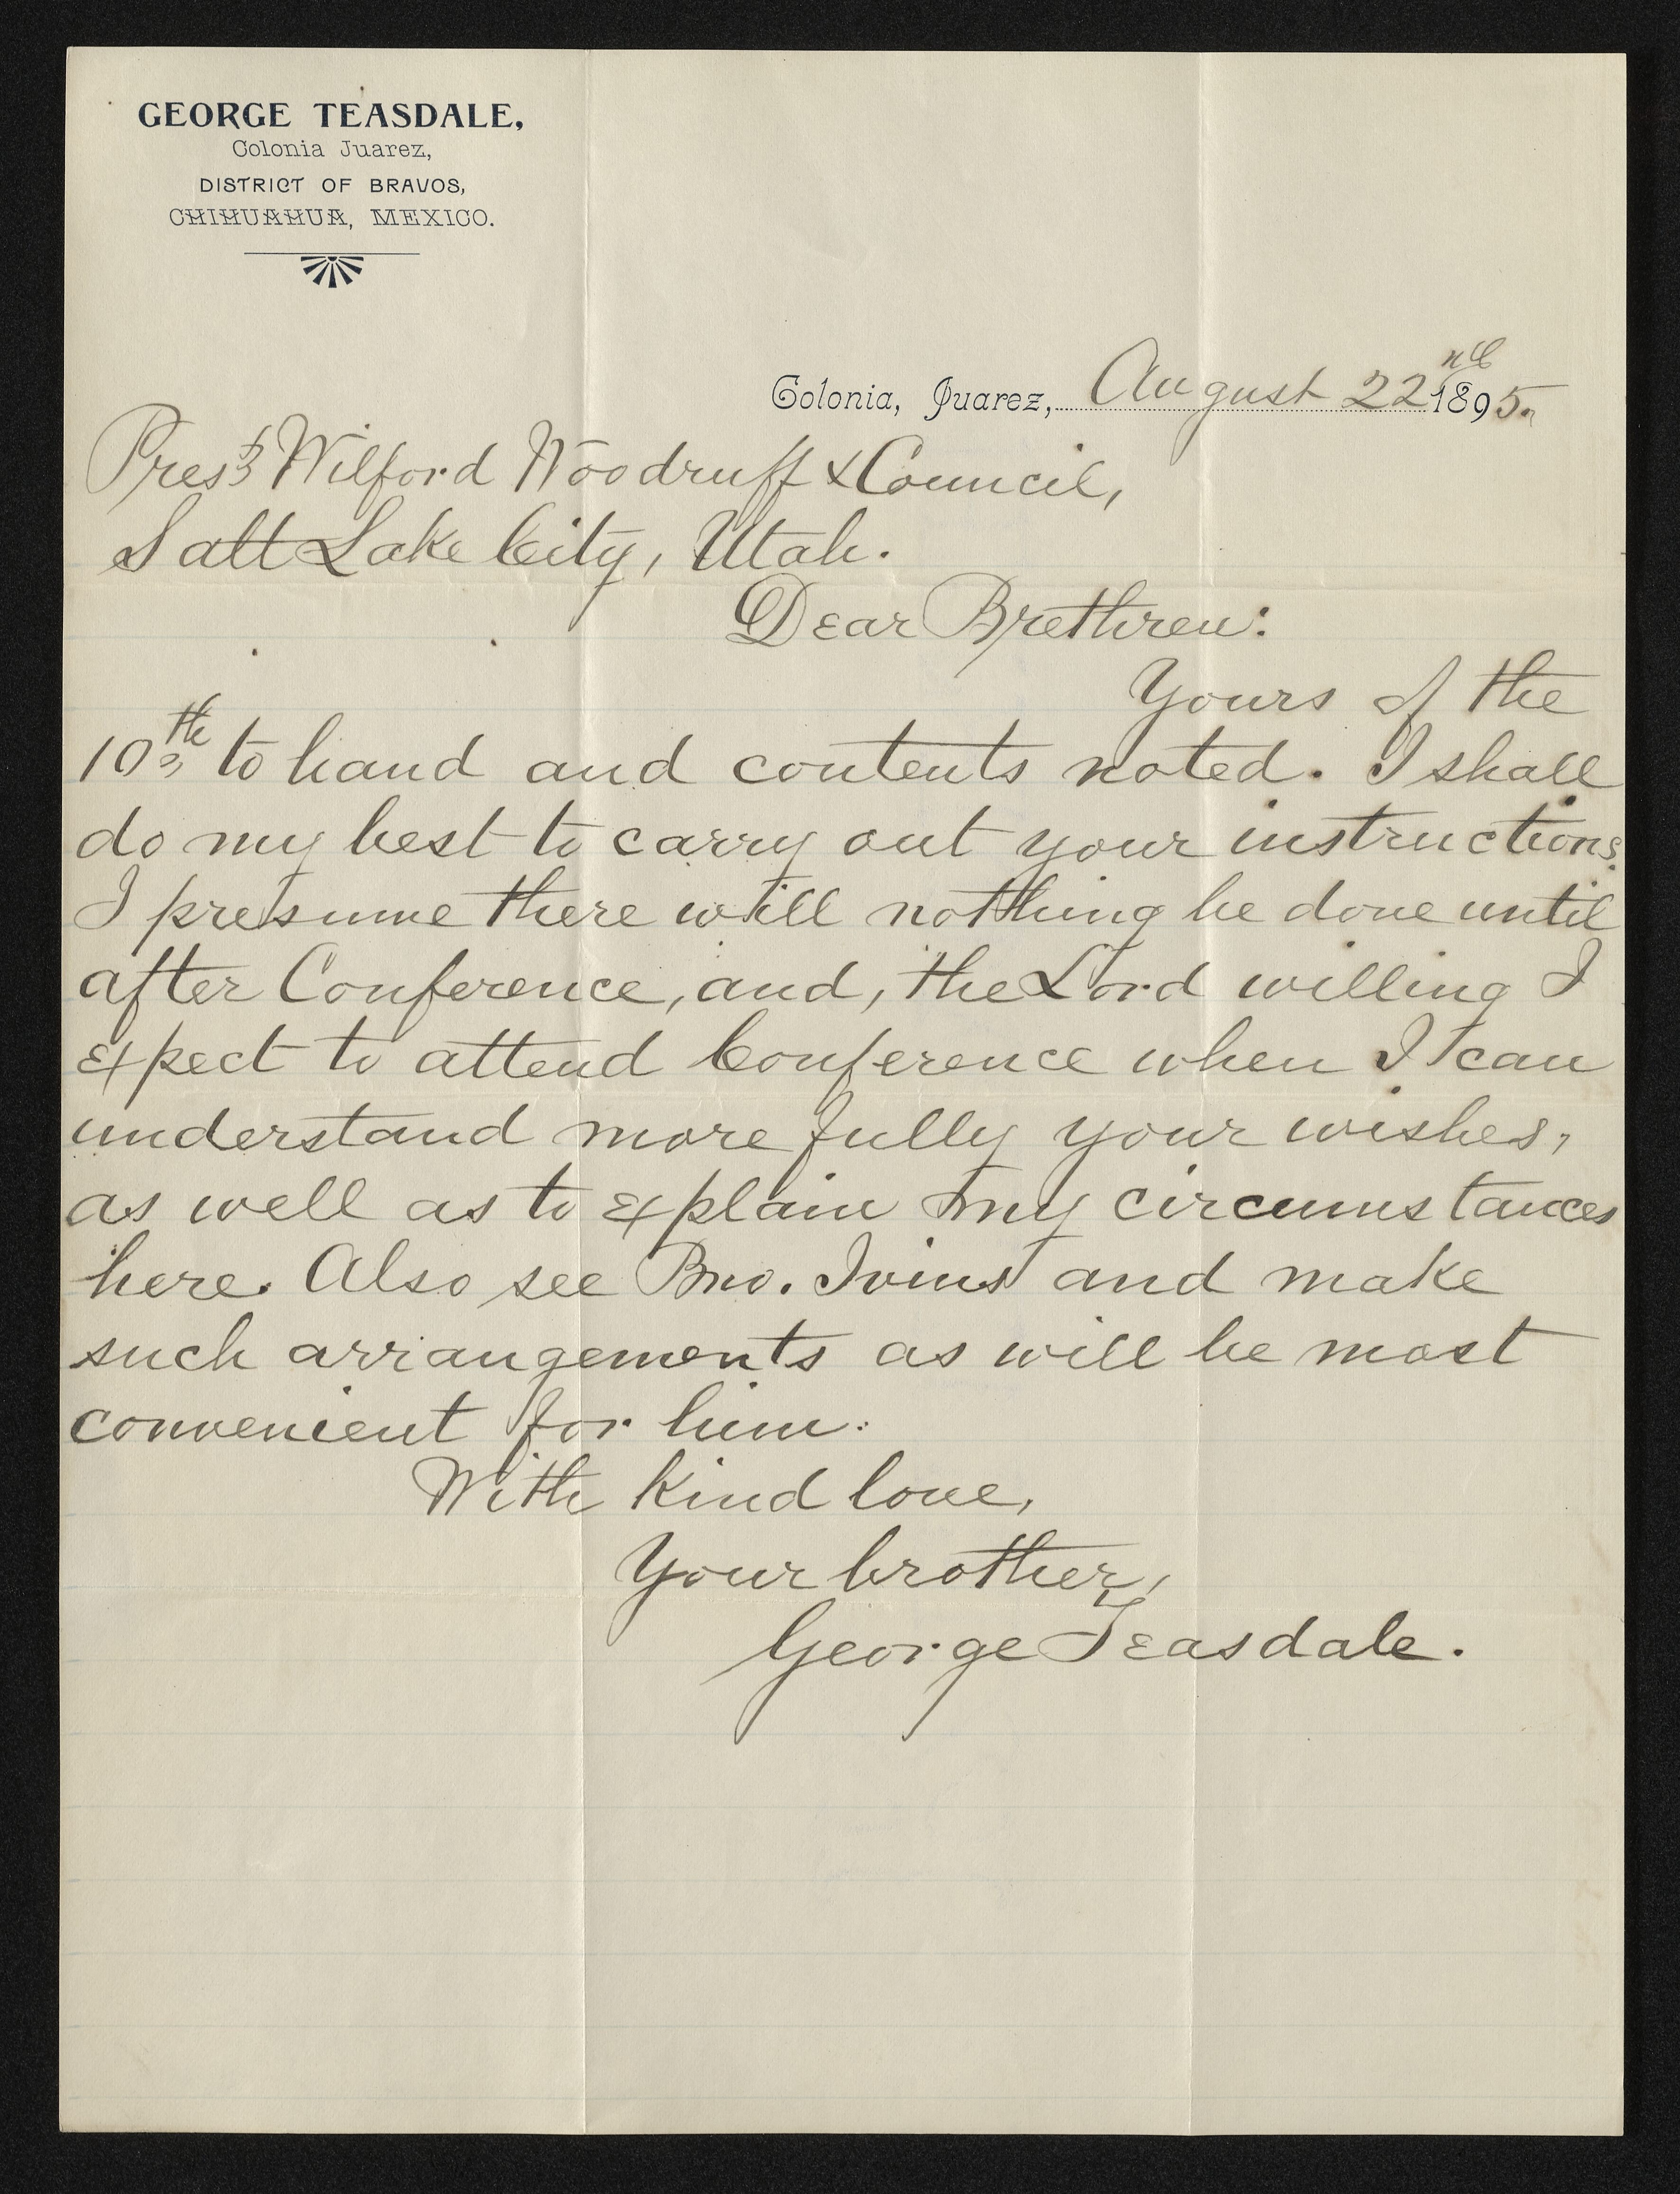 GEORGE TEASDALE,
Colonia Juarez,
DISTRICT OF BRAVOS,
CHIHUAHUA, MEXICO.
Colonia, Juarez, August 22nd 1895.
Prest Wilford Woodruff & Council,
Salt Lake City, Utah.
Dear Brethren:
Yours of the
10th to hand and contents noted. I shall
do my best to carry out your instructions.
I presume there will nothing be done until
after Conference, and, the Lord willing I
expect to attend Conference when I can
understand more fully your wishes,
as well as to explain my circumstances
here. Also see Bro. Ivins and make
such arrangements as will be most
convenient for him.
With kind love,
Your brother,
George Teasdale.